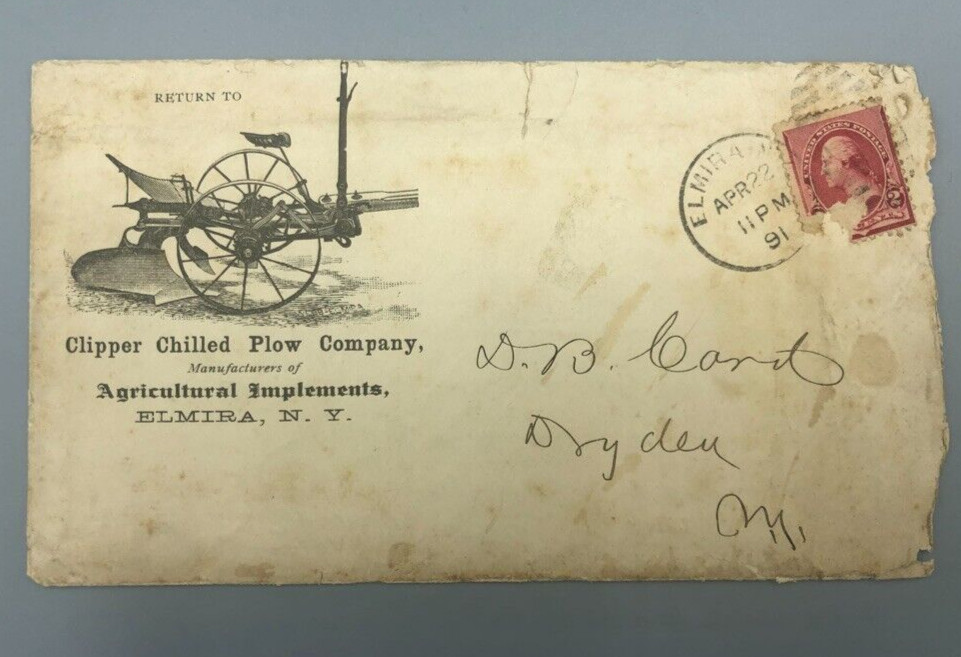 RETURN TO
Clipper Chilled Plow Company,
Manufacturers of
Agricultural Implements,
ELMIRA, N. Y.
ELMIRA
APR 22
11 PM
91
UNITED STATES POSTAGE
2
CENTS
D. B. Card
Dryden
N.Y.